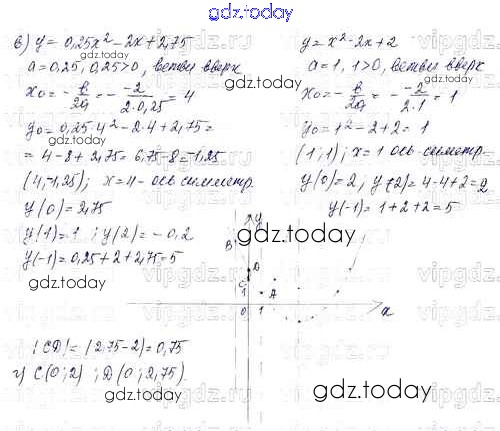 gdz.today
в) y = 0,25x² - 2x + 2,75
a = 0,25, 0,25 > 0, ветви вверх
x₀ = - в/2a = - -2/2·0,25 = 4
y₀ = 0,25·4² - 2·4 + 2,75 =
= 4 - 8 + 2,75 = 6,75 - 8 = -1,25
(4; -1,25); x = 4 - ось симметр.
y(0) = 2,75
y(1) = 1 ; y(2) = -0,2
y(-1) = 0,25 + 2 + 2,75 = 5
y = x² - 2x + 2
a = 1, 1 > 0, ветви вверх
x₀ = - в/2a = - -2/2·1 = 1
y₀ = 1² - 2 + 2 = 1
(1; 1); x = 1 ось симметр.
y(0) = 2; y(2) = 4 - 4 + 2 = 2
y(-1) = 1 + 2 + 2 = 5
y
B
D
C
1
A
0
1
x
|CD| = |2,75 - 2| = 0,75
г) C(0; 2) ; D(0; 2,75).
gdz.today
gdz.today
gdz.today
gdz.today
gdz.today
gdz.today